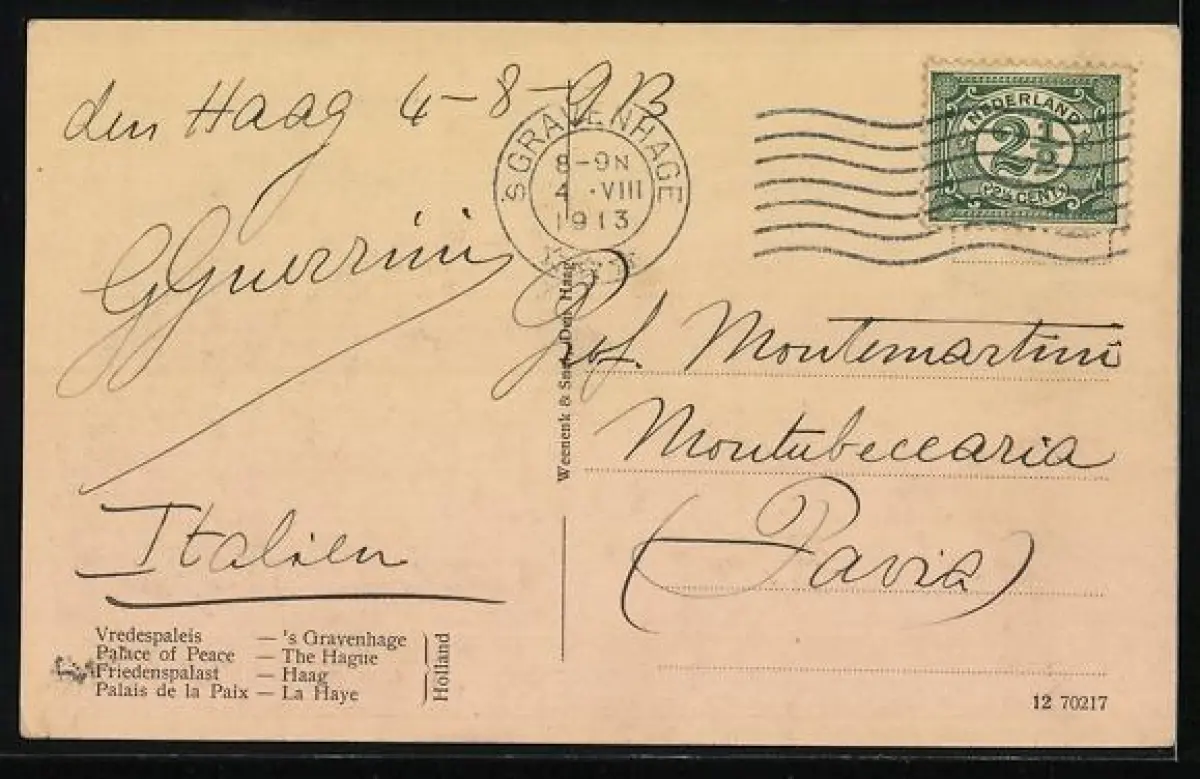 den Haag 4-8-913
'S GRAVENHAGE
8-9N
4 ·VIII
1913
NEDERLAND
2½
(2½ CENT)
GGuerrini
Prof. Montemartini
Montubeccaria
(Pavia)
Italien
Weenenk & Snel, Den Haag
Vredespaleis — 's Gravenhage
Palace of Peace — The Hague
Friedenspalast — Haag
Palais de la Paix — La Haye
Holland
12 70217